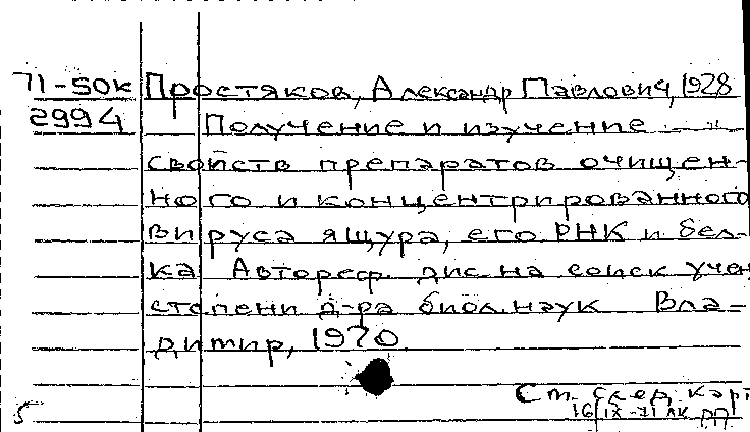 71-50к Простяков, Александр Павлович, 1928
2994 Получение и изучение
свойств препаратов очищен-
ного и концентрированного
вируса ящура, его РНК и бел-
ка Автореф. дис. на соиск учен
степени д-ра биол. наук Вла-
димир, 1970.
См. след. карт
5 16/IX-71 АК